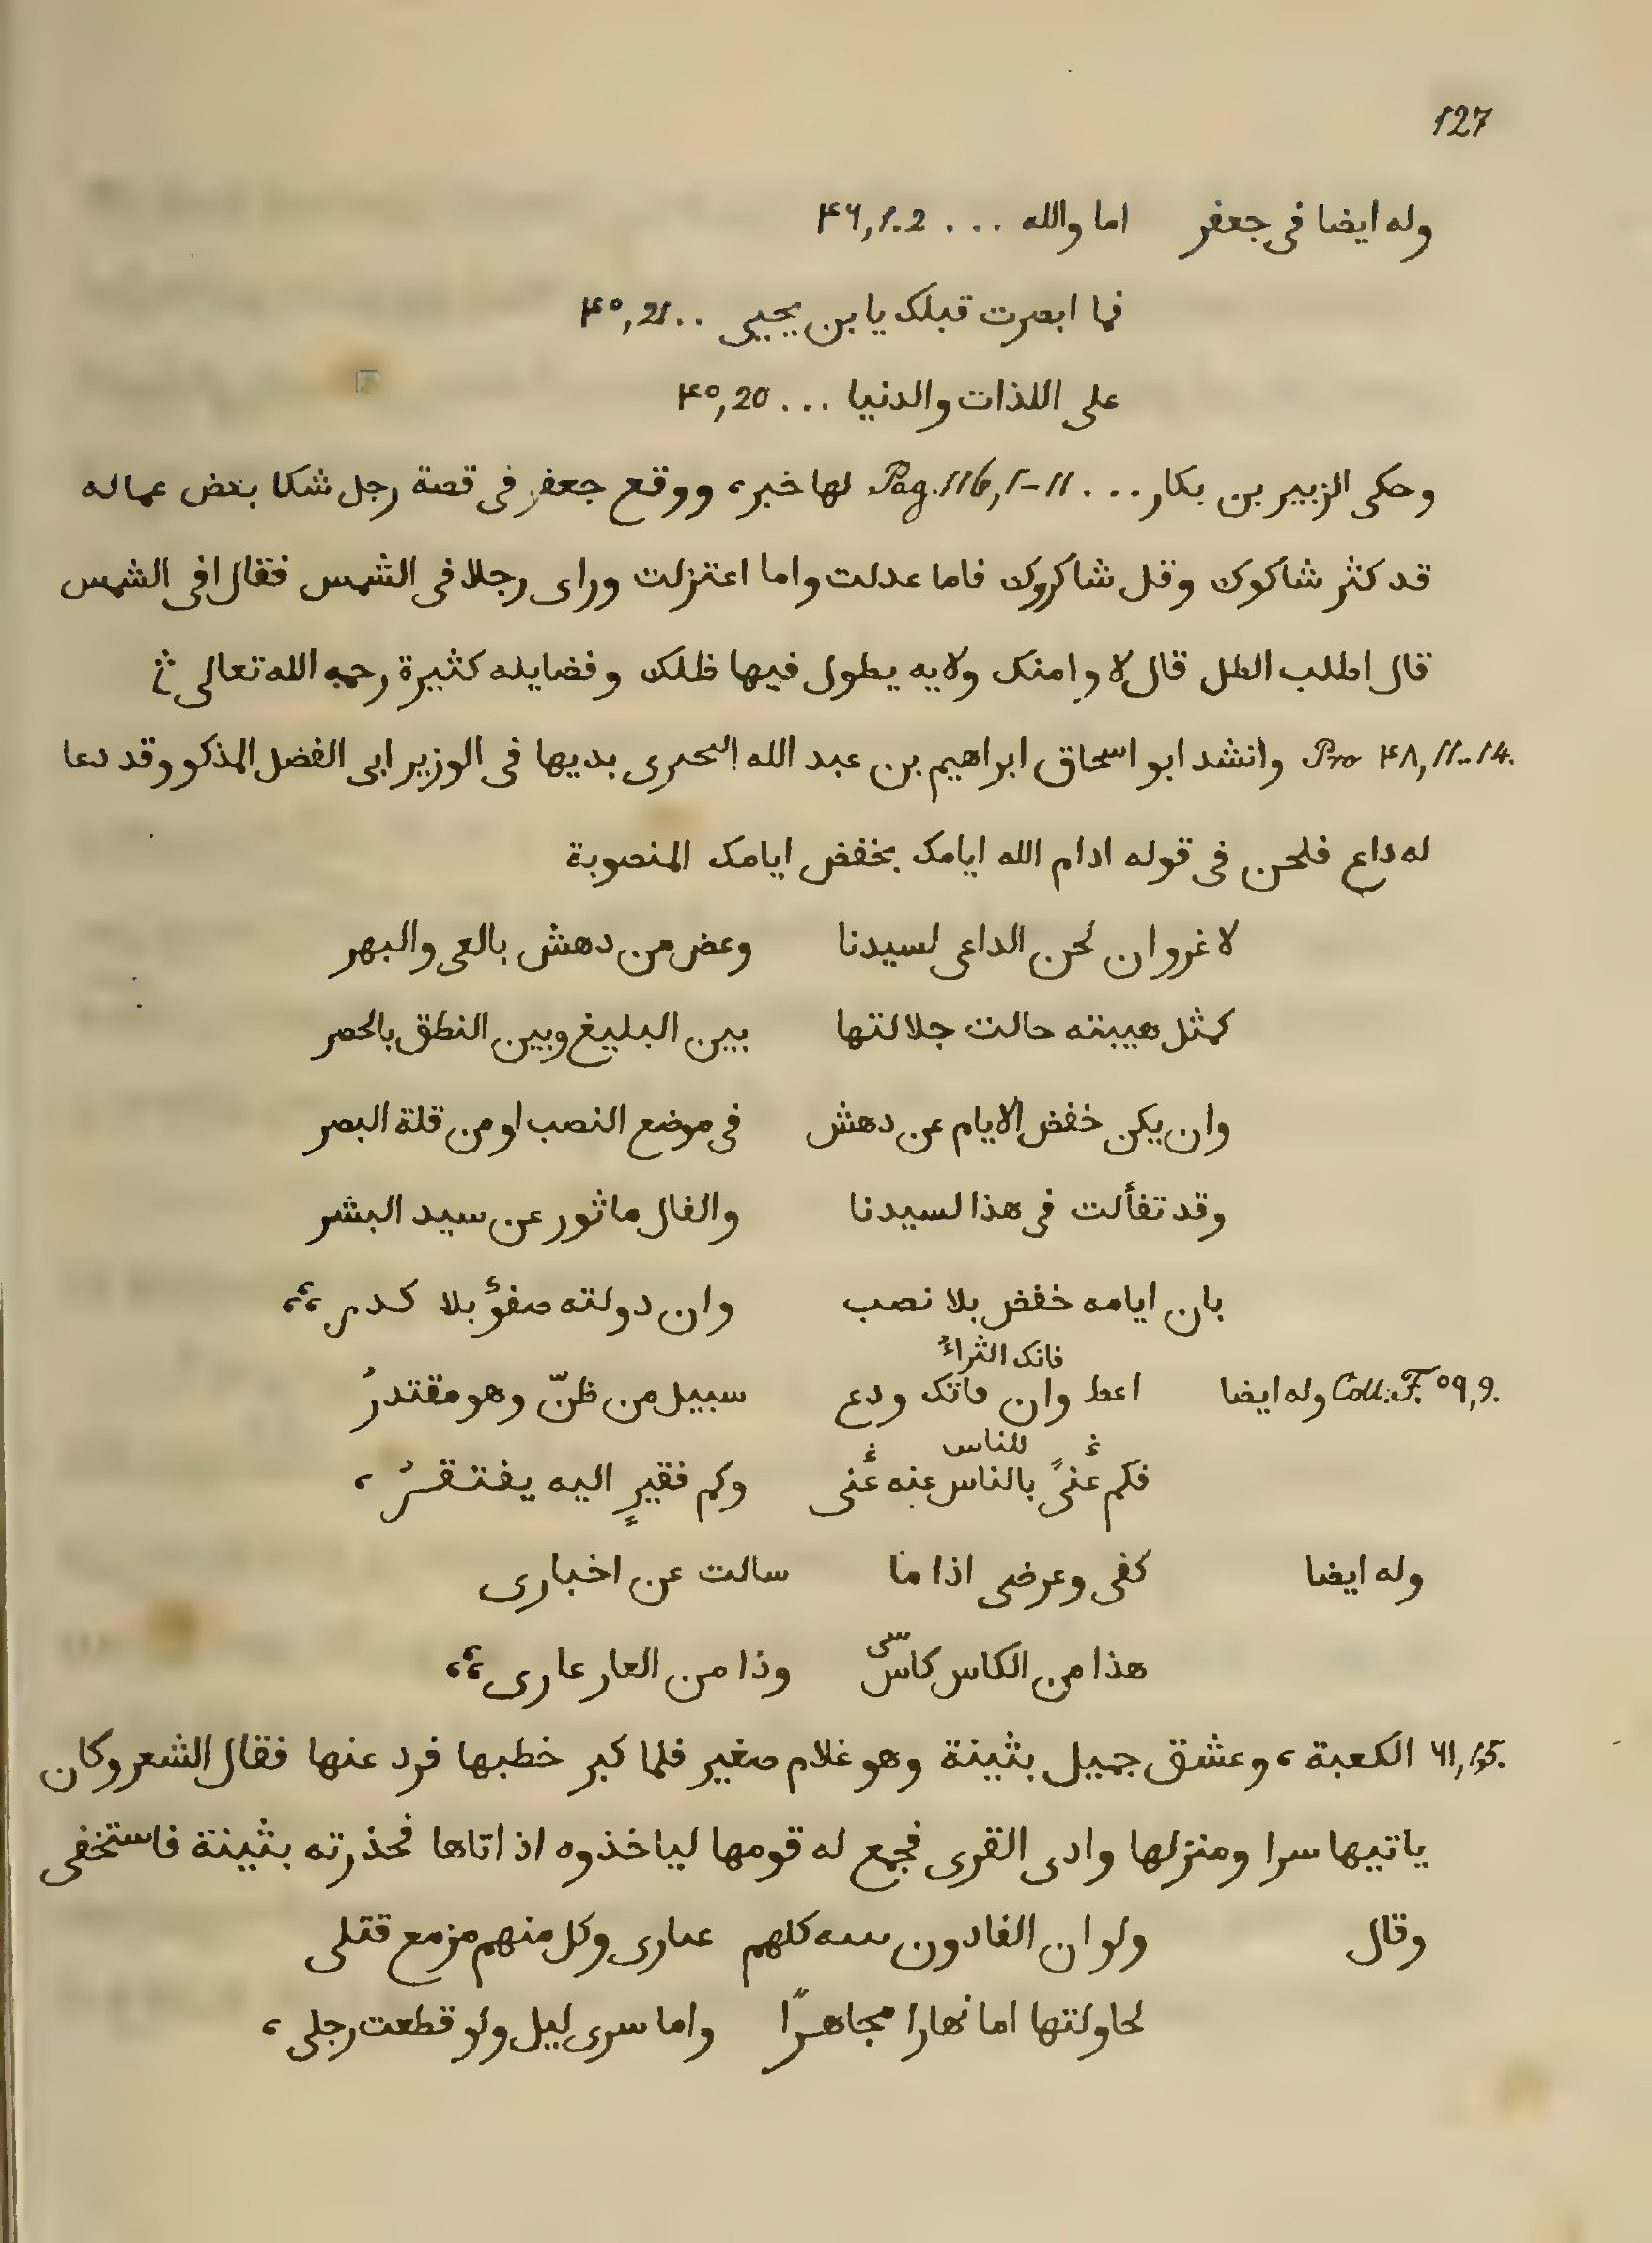 127
وله ايضا فى جعفر اما والله ... ۴۶,1.2
فما ابصرت قبلك يا بن يحيى .. ۴۵,21
على اللذات والدنيا ... ۴۵,20
وحكى الزبير بن بكار ... Pag. 116,1-11 لها خبر، ووقع جعفر فى قصة رجل شكا بعض عماله
قد كثر شاكوك وقل شاكروك فاما عدلت واما اعتزلت وراى رجلا فى الشمس فقال افى الشمس
قال اطلب الظل قال لا وامنك ولايه يطول فيها ظلك وفضايله كثيرة رحمه الله تعالى
Pro ۴۸, 11-14. وانشد ابو اسحاق ابراهيم بن عبد الله بديها فى الوزير ابى الفضل المذكو وقد دعا
له داع فلحن فى قوله ادام الله ايامك بخفض ايامك المنصوبة
لا غرو ان لحن الداعى لسيدنا وعض من دهش بالعى والبهر
كمثل هيبته حالت جلالتها بين البليغ وبين النطق بالحصر
وان يكن خفض الايام عن دهش فى موضع النصب او من قلة البصر
وقد تفألت فى هذا لسيدنا والفال ماثور عن سيد البشر
بان ايامه خفض بلا نصب وان دولته صفوٌ بلا كدر
فاتك الثراءُ
Coll: F. ۵۹,9. وله ايضا اعط وان فاتك ودع سبيل من ظنّ وهو مقتدرُ
غ للناس غ
فكم غنىً بالناس عنه غنى وكم فقيرٍ اليه يفتقرُ،
وله ايضا كفى وعرضى اذا ما سالت عن اخبارى
سى
هذا من الكاس كاسٌ وذا من العار عارى
۶۱,15. الكعبة، وعشق جميل بثينة وهو غلام صغير فلما كبر خطبها فرد عنها فقال الشعر وكان
ياتيها سرا ومنزلها وادى القرى فجمع له قومها لياخذوه اذ اتاها فحذرته بثينة فاستخفى
وقال ولو ان الفادون كلهم عمارى وكل منهم مزمع قتلى
لحاولتها اما نهارا مجاهرًا واما سرى ليل ولو قطعت رجلى،